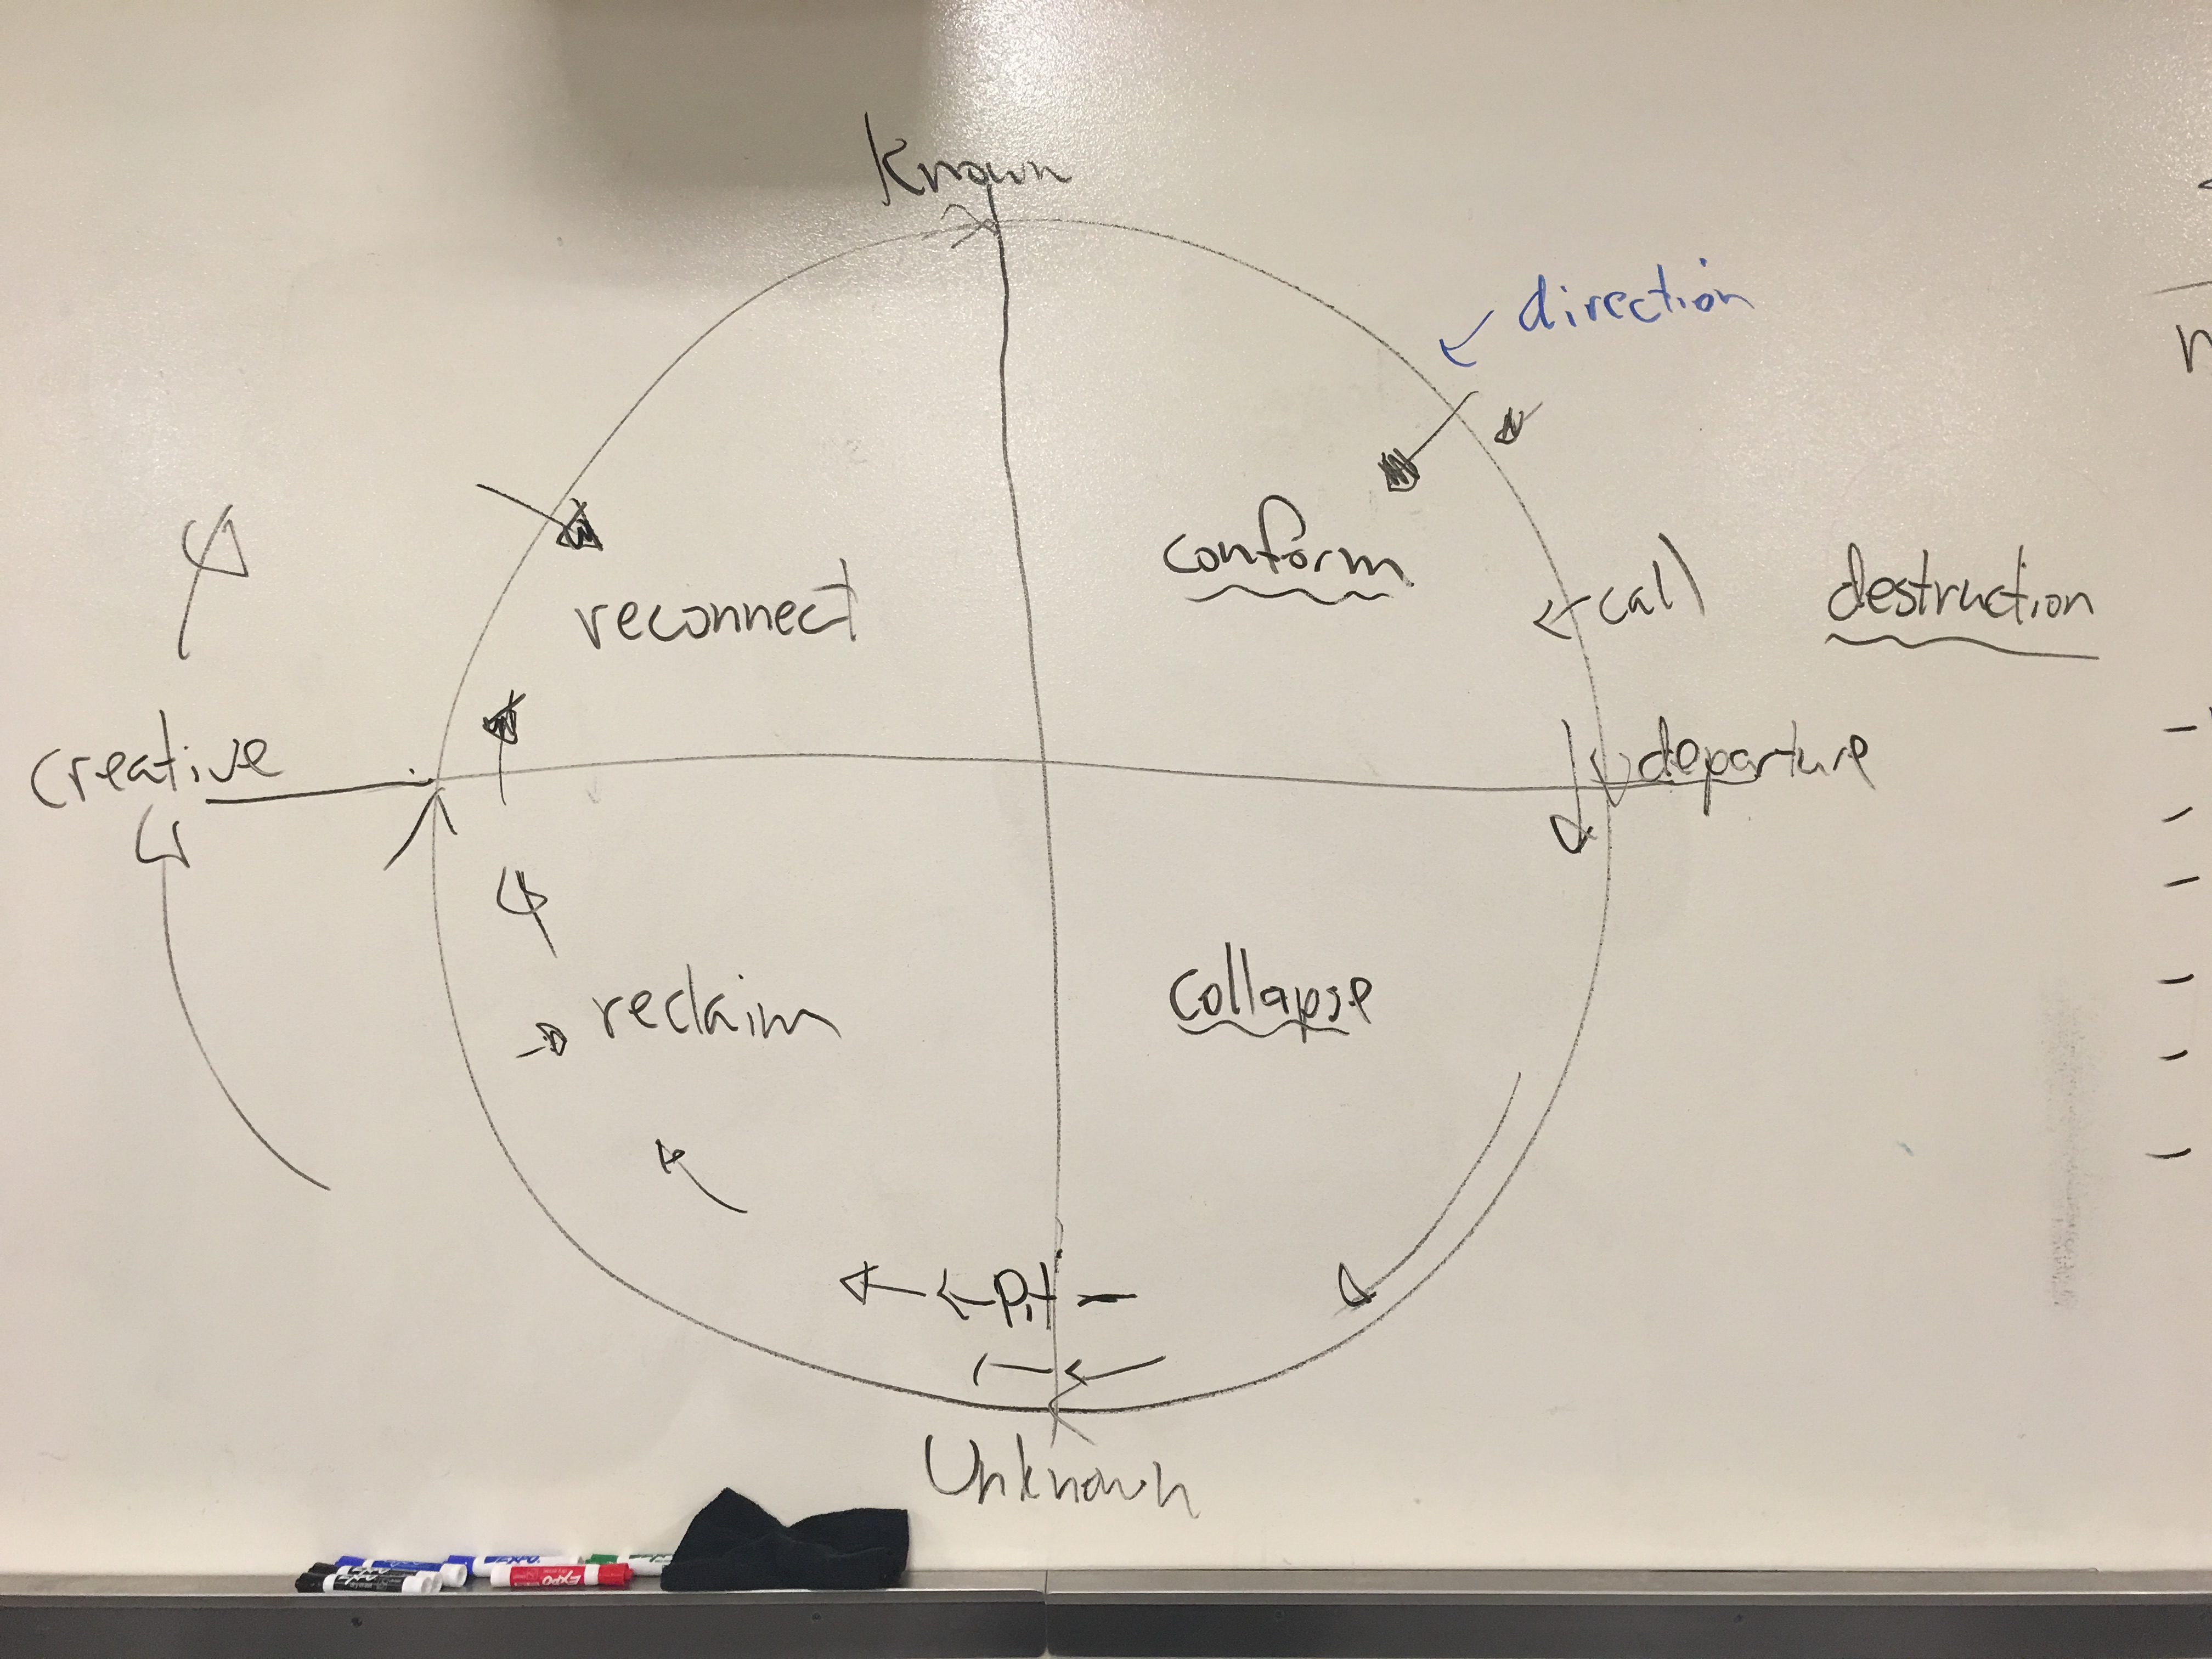 Known
direction
conform
call
destruction
reconnect
departure
creative
collapse
reclaim
Pit
Unknown
EXPO
EXPO